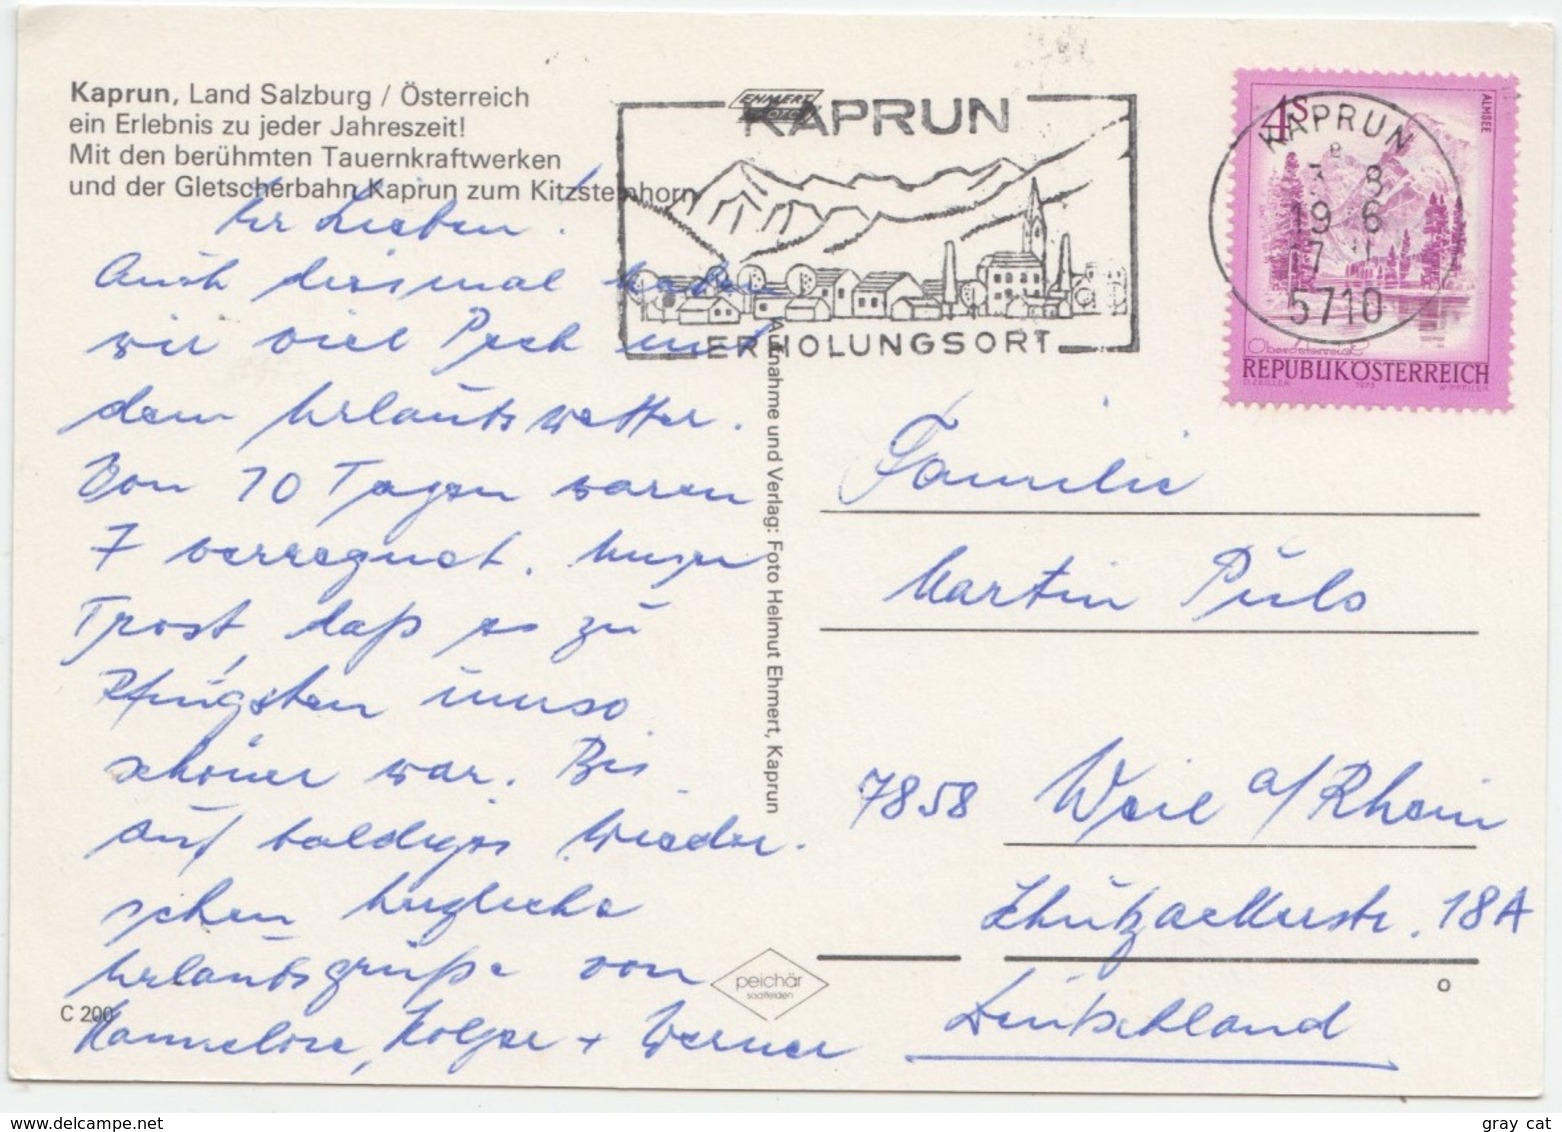 Kaprun, Land Salzburg / Österreich
ein Erlebnis zu jeder Jahreszeit!
Mit den berühmten Tauernkraftwerken
und der Gletscherbahn Kaprun zum Kitzsteinhorn
Ihr Lieben!
Auch diesmal haben
wir viel Pech mit
dem Urlaubswetter.
Von 10 Tagen waren
7 verregnet. Unser
Trost, daß es zu
Pfingsten umso
schöner war. Bis
auf baldiges Wieder-
sehen herzliche
Urlaubsgrüße von
Hannelore, Holger + Werner
C 200
EHMERT
FOTO
KAPRUN
ERHOLUNGSORT
KAPRUN
19 6
17
5710
4S
ALMSEE
Oberösterreich
REPUBLIK ÖSTERREICH
O. ZEILLER 1973 W. PFEILER
Aufnahme und Verlag: Foto Helmut Ehmert, Kaprun
Familie
Martin Puls
7858 Weil a/Rhein
Schützackerstr. 18A
Deutschland
peichär
saalfelden
www.delcampe.net
gray cat